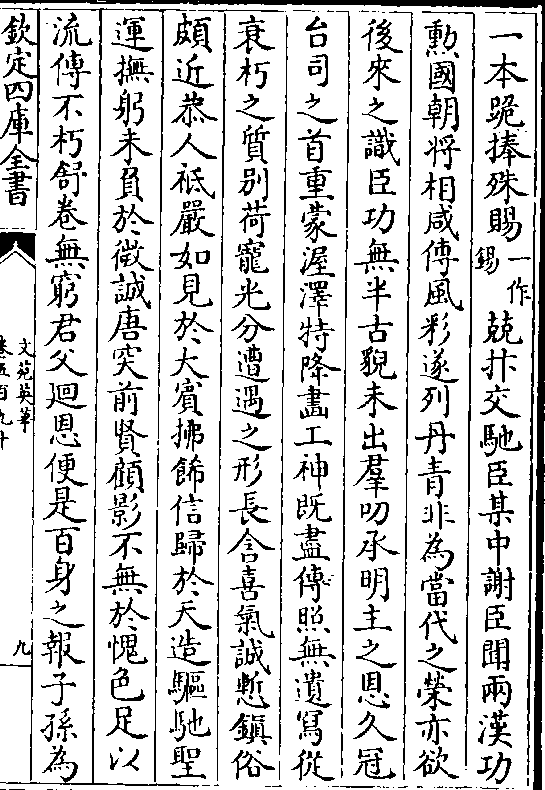 一本跪捧殊賜一作錫兢抃交馳臣某中謝臣聞兩漢功
勲國朝將相咸傳風彩遂列丹青非為當代之榮亦欲
後來之識臣功無半古貎未出羣叨承明主之恩久冠
台司之首重蒙渥澤特降畵工神既盡傳照無遺寫從
衰朽之質别荷寵光分遭遇之形長含喜氣誠慙鎮俗
頗近恭人祗嚴如見於大賓拂飾信歸於天造驅馳聖
運撫躬未負於微誠唐突前賢顧影不無於愧色足以
流傳不朽舒卷無窮君父廻恩便是百身之報子孫為
欽定四庫全書
文苑英華
卷五百九十
九